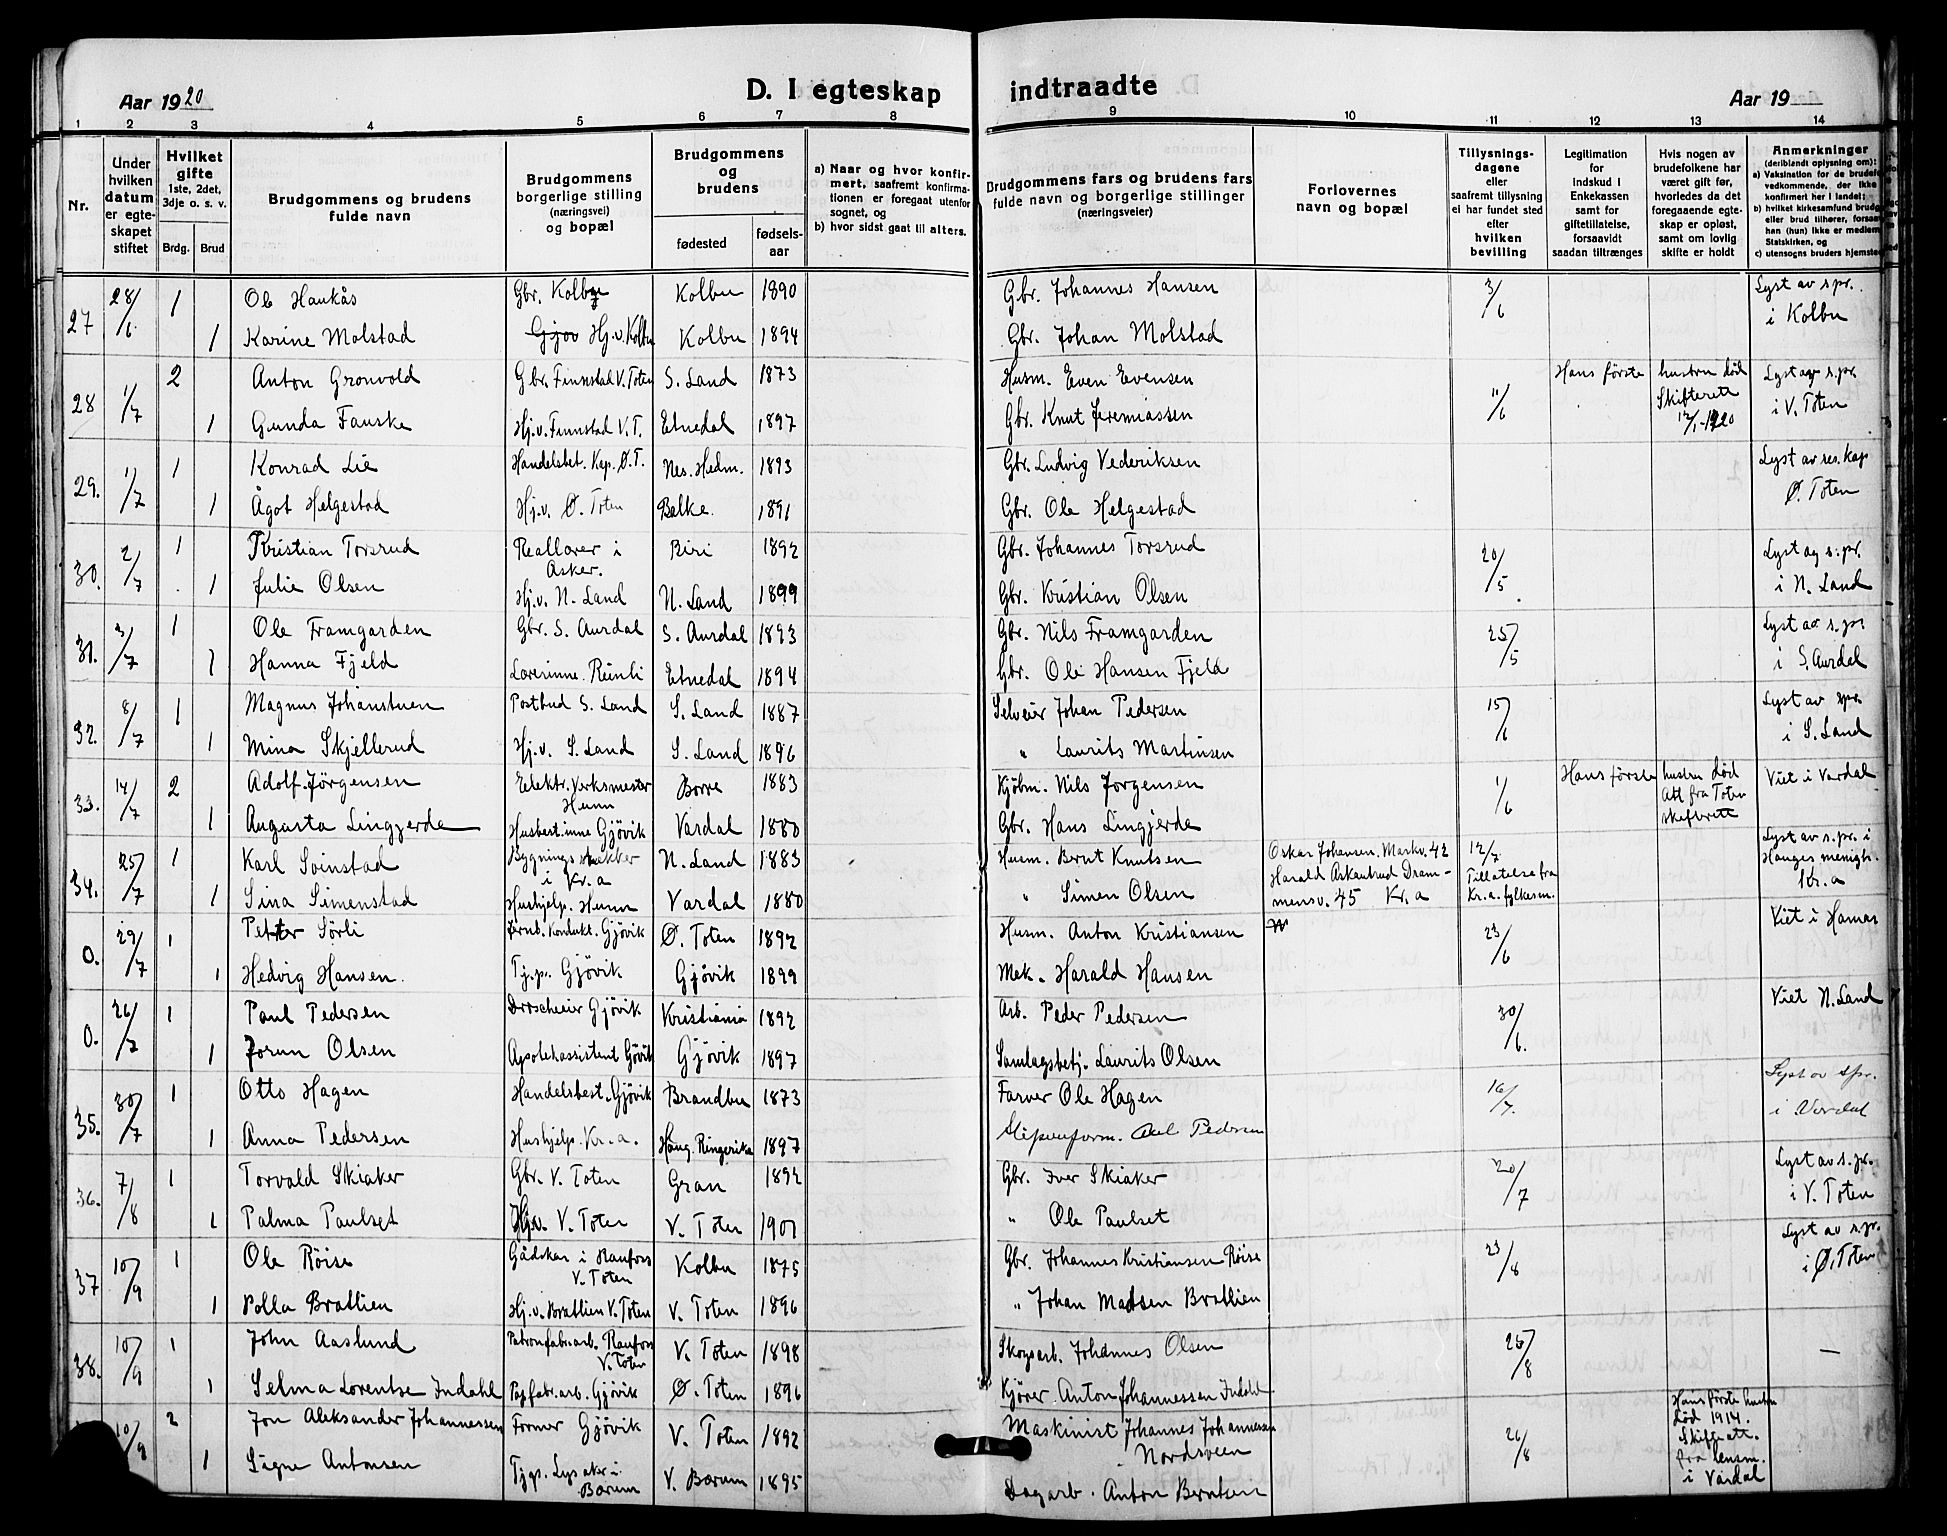 Aar 1920
D. I egteskap
indtraadte
Aar 19
1 2 3 4 5 6 7 8 9 10 11 12 13 14
Nr.
Under hvilken datum er egteskapet stiftet
Hvilket gifte 1ste, 2det, 3dje o. s. v.
Brdg. Brud
Brudgommens og brudens fulde navn
Brudgommens borgerlige stilling (næringsvei) og bopæl
Brudgommens og brudens
fødested
fødselsaar
a) Naar og hvor konfirmert, saafremt konfirmationen er foregaat utenfor sognet, og
b) hvor sidst gaat til alters.
Brudgommens fars og brudens fars fulde navn og borgerlige stillinger (næringsveier)
Forlovernes navn og bopæl
Tillysningsdagene eller saafremt tillysning ei har fundet sted efter hvilken bevilling
Legitimation for Indskud i Enkekassen samt for giftetillatelse, forsaavidt saadan tiltrænges
Hvis nogen av brudefolkene har været gift før, hvorledes da det foregaaende egteskap er opløst, samt om lovlig skifte er holdt
Anmerkninger
27 28/6 1 Ole Haukås Gbr. Kolbu Kolbu 1890 Gbr. Johannes Hansen 3/6 Lyst av s.pr. i Kolbu
1 Karine Molstad Gjov Hj.v. Kolbu Kolbu 1894 Gbr. Johan Molstad
28 1/7 2 Anton Grønvold Gbr. Finnstad V. Toten S. Land 1873 Husm. Even Evensen 11/6 Hans første hustru død Skifterett 12/1-1920 Lyst av s.pr. i V. Toten
1 Gunda Fauske Hj.v. Finnstad V.T. Etnedal 1897 Gbr. Knut Jeremiassen
29. 1/7 1 Konrad Lie Handelsbet. Kap. Ø.T. Nes. Hedm. 1893 Gbr. Ludvig Vederiksen Lyst av res. kap Ø. Toten
1 Ågot Helgestad Hj.v. Ø. Toten Balke. 1891 Gbr. Ole Helgestad
30. 2/7 1 Kristian Torsrud Reallærer i Asker. Biri 1892 Gbr. Johannes Torsrud 20/5 Lyst av s.pr. i N. Land
1 Julie Olsen Hj.v. N. Land N. Land 1899 Gbr. Kristian Olsen
31. 3/7 1 Ole Framgarden Gbr. S. Aurdal S. Aurdal 1893 Gbr. Nils Framgarden 25/5 Lyst av s.pr i S. Aurdal
1 Hanna Fjeld Lærerinne. Reinli Etnedal 1894 Gbr. Ole Hansen Fjeld
32. 8/7 1 Magnus Johanstuen Postbud S. Land S. Land 1887 Selveier Johan Pedersen 15/6 Lyst av spr. i S. Land
1 Mina Skjellerud Hj.v. S. Land S. Land 1896 " Laurits Martinsen
33. 14/7 2 Adolf Jörgensen Elektr. Verksmester Hunn Borre 1883 Kjöbm. Nils Jörgensen 1/6 Hans første hustru død Att fra Toten skifterett Viet i Vardal
1 Augusta Lingjerde Husbest.inne Gjövik Vardal 1880 Gbr. Hans Lingjerde
34. 25/7 1 Karl Soinstad Bygningssnekker i Kr.a N. Land 1883 Husm. Bernt Knutsen Oskar Johansen. Markv. 42 Harald Askautrud Drammensv. 45 Kr.a 12/7 Tillatelse fra Kr.a. fylkesm. Lyst av s.pr. i Hauges menigh. Kr.a
1 Sina Simenstad Hushjelp. Hunn Vardal 1880 " Simen Olsen
0. 29/7 1 Petter Sörli Jernb. Kondukt. Gjövik Ø. Toten 1892 Husm. Anton Kristiansen 23/6 Viet i Hamar
1 Hedvig Hansen. Tj.p. Gjövik Gjövik 1899 Mek. Harald Hansen
0. 26/7 1 Paul Pedersen Droscheeier Gjövik Kristiania 1892 Arb. Peder Pedersen 30/6. Viet N. Land
1 Jorun Olsen Apotekassistent Gjövik Gjövik 1897 Samlagsbetj. Laurits Olsen
35. 30/7 1 Otto Hagen Handelsbest. Gjövik Brandbu 1873 Farver Ole Hagen 16/7. Lyst av spr. i Vardal
1 Anna Pedersen Hushjelp. Kr.a. Haug. Ringerike 1897 Aul Pedersen
36. 7/8 1 Torvald Skiaker Gbr. V. Toten Gran 1892 Gbr. Iver Skiaker 20/7 Lyst av s.pr. i V. Toten
1 Palma Paulset Hj.v. V. Toten V. Toten 1901 " Ole Paulset
37 10/9 1 Ole Röise Gådskar i Raufoss V. Toten Kolbu 1875 Gbr. Johannes Kristiansen Röise 23/8 Lyst av s.pr. i Ø. Toten
1 Polla Brattlien Hj.v. Brattlien V. Toten V. Toten 1896 " Johan Madsen Brattlien
38. 10/9 1 John Aaslund Patronfabr.arb. Raufoss V. Toten V. Toten 1898 Skogsarb. Johannes Olsen 26/8 —
1 Selma Lorentse Indahl Papfabr.arb. Gjövik Ø. Toten 1896 Kjörer Anton Johannessen Indahl
10/9 2 Jon Aleksander Johannessen Former Gjövik V. Toten 1892 Maskinist Johannes Johannessen Nordsveen 26/8 Hans første hustru død 1914. Skifteatt. fra lensm. i Vardal
1 Signe Antonsen Tjp. Lysaker i Bærum V. Bærum 1895 Dagarb. Anton Berntsen